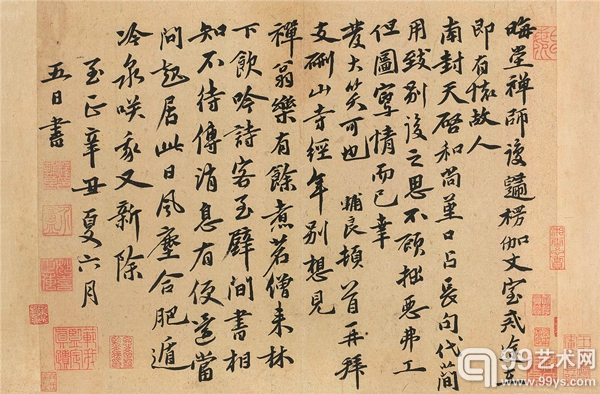 晦堂禪師復歸楞伽丈室
即有懷故人
南封天啓和尚 口占長句代簡
用致別後之思不顧拙惡弗工
但圖寫情而已幸
發大笑可也 輔良頓首再拜
支硎山寺經年別想見
禪翁樂有餘煮茗僧來林
下飲吟詩客至壁間書相
知不待傳消息有便還當
問起居此日風塵合肥遁
冷泉咲我又新除
至正辛丑夏六月
五日書
99艺术网
www.99ys.com